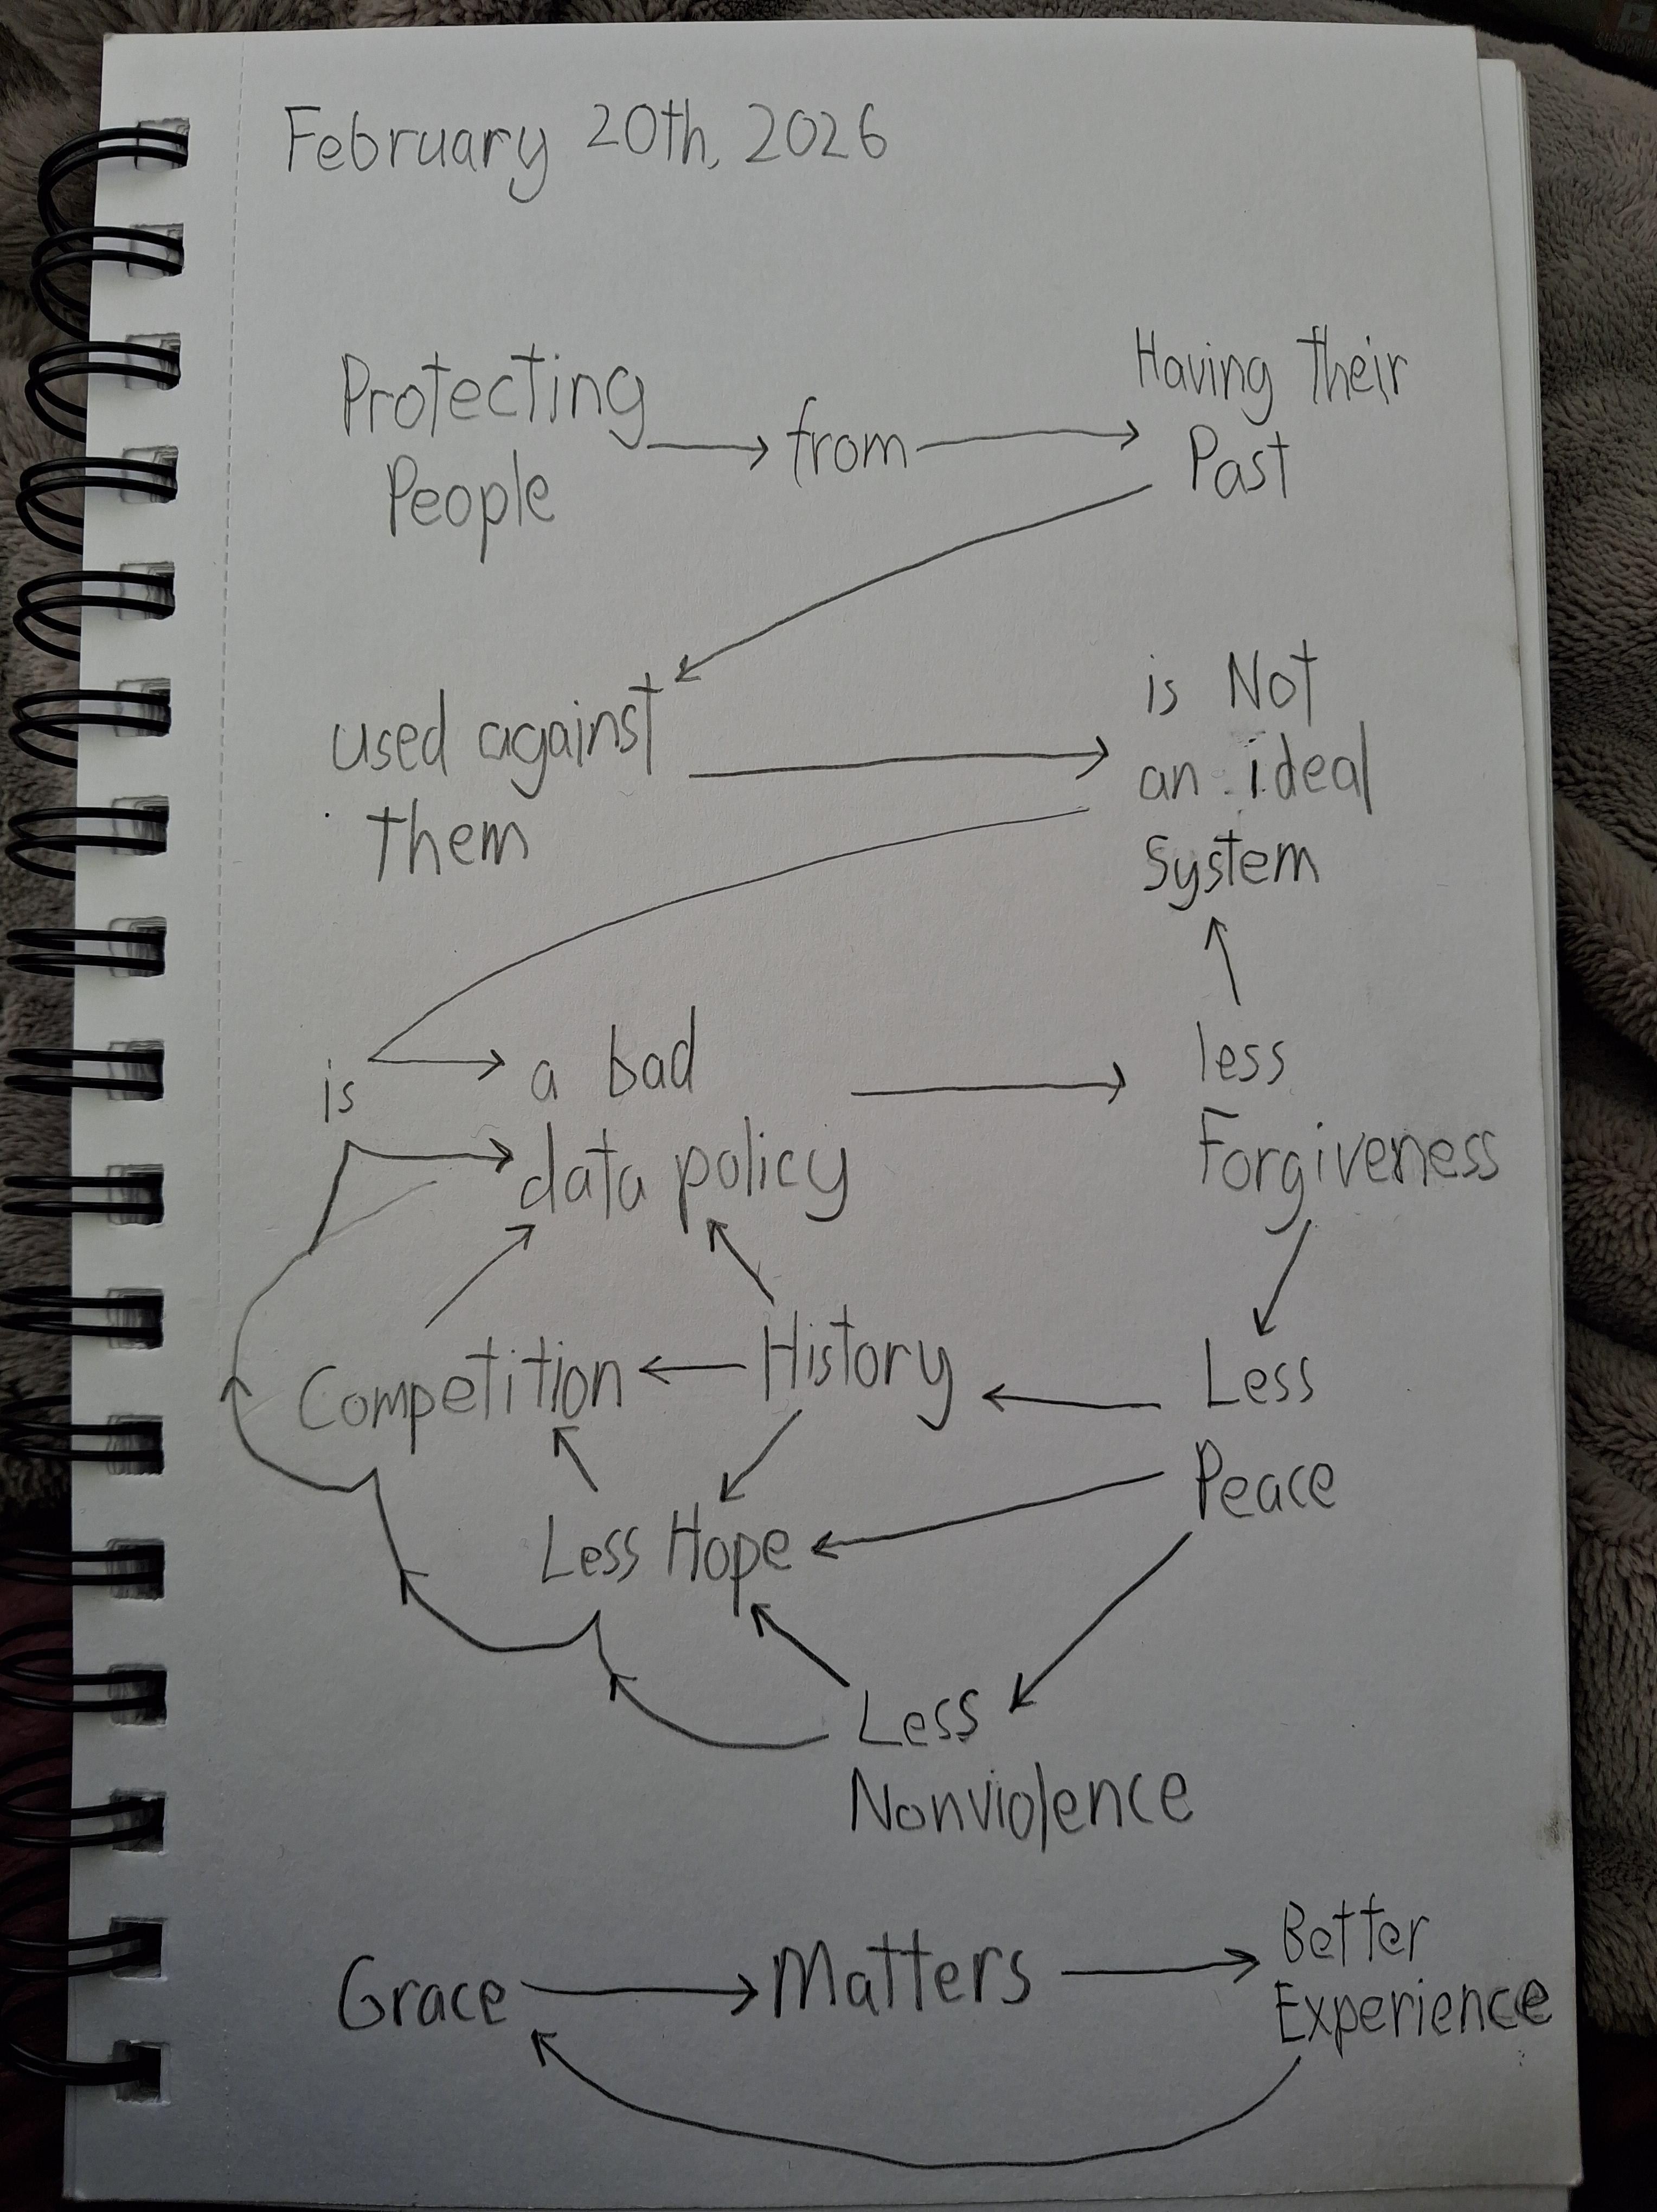 February 20th, 2026
Protecting
People
from
Having their
Past
used against
them
is Not
an ideal
System
is
a bad
data policy
less
Forgiveness
Competition
History
Less
Peace
Less Hope
Less
Nonviolence
Grace
Matters
Better
Experience